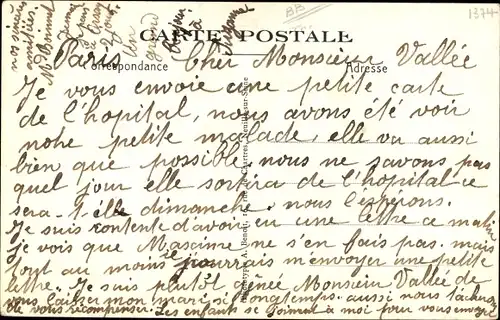 CARTE POSTALE
Correspondance
Adresse
BB
1374
Paris Cher Monsieur Vallée
Je vous envoie une petite carte
de l'hopital, nous avons été voir
notre petite malade, elle va aussi
bien que possible, nous ne savons pas
quel jour elle sortira de l'hopital ce
sera-t'elle dimanche, nous l'esperons.
Je suis contente d'avoir eu une lettre ce matin
je vois que Maxime ne s'en fais pas. mais
tout au moins se pourrais m'envoyer une petite
lettre. Je suis plutôt gênée Monsieur Vallée de
vous laisser mon mari si longtemps. aussi nous tacherons
de vous récompenser. Les enfants se joignent à moi pour vous envoyer
un
grand
à